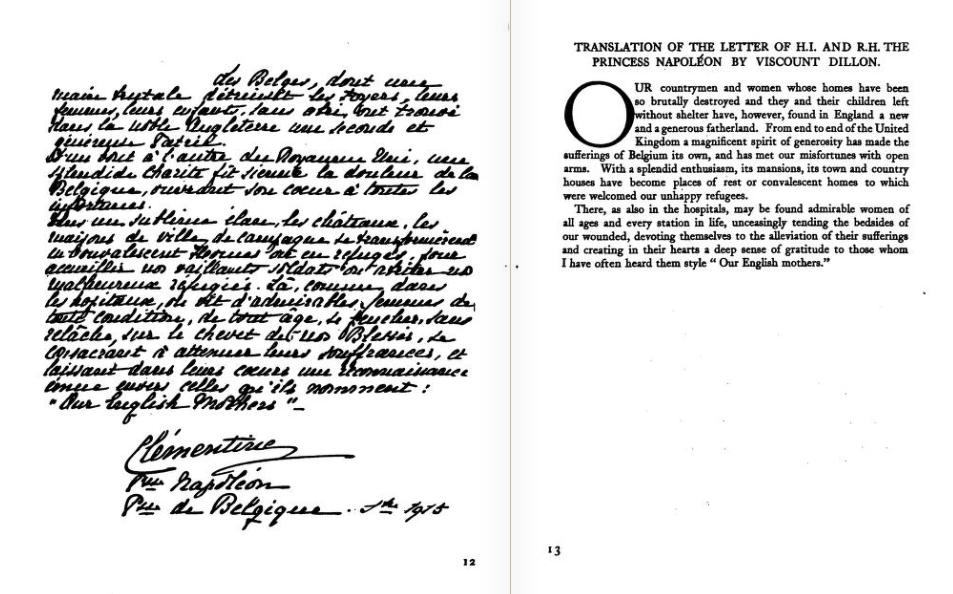 des Belges, dont une
main brutale détruisit les foyers, leurs
femmes, leurs enfants, sans abri, ont trouvé
dans la noble Angleterre une seconde et
généreuse Patrie.
D'un bout à l'autre du Royaume Uni, une
splendide charité fit sienne la douleur de la
Belgique, ouvrant son cœur à toutes les
infortunes.
Dans un sublime élan, les châteaux, les
maisons de ville, de campagne se transformèrent
en Convalescent Homes ou en refuges, pour
accueillir nos vaillants soldats ou abriter nos
malheureux réfugiés. Là, comme dans
les hopitaux, on vit d'admirables femmes de
toute condition, de tout âge, se pencher, sans
relâche, sur le chevet de nos Blessés, se
consacrant à attenuer leurs souffrances, et
laissant dans leurs cœurs une reconnaissance
émue envers celles qu'ils nomment :
"Our English Mothers" _
Clémentine
Pcesse Napoléon
Pcesse de Belgique. 1915
12
TRANSLATION OF THE LETTER OF H.I. AND R.H. THE
PRINCESS NAPOLÉON BY VISCOUNT DILLON.
OUR countrymen and women whose homes have been
so brutally destroyed and they and their children left
without shelter have, however, found in England a new
and a generous fatherland. From end to end of the United
Kingdom a magnificent spirit of generosity has made the
sufferings of Belgium its own, and has met our misfortunes with open
arms. With a splendid enthusiasm, its mansions, its town and country
houses have become places of rest or convalescent homes to which
were welcomed our unhappy refugees.
There, as also in the hospitals, may be found admirable women of
all ages and every station in life, unceasingly tending the bedsides of
our wounded, devoting themselves to the alleviation of their sufferings
and creating in their hearts a deep sense of gratitude to those whom
I have often heard them style " Our English mothers."
13